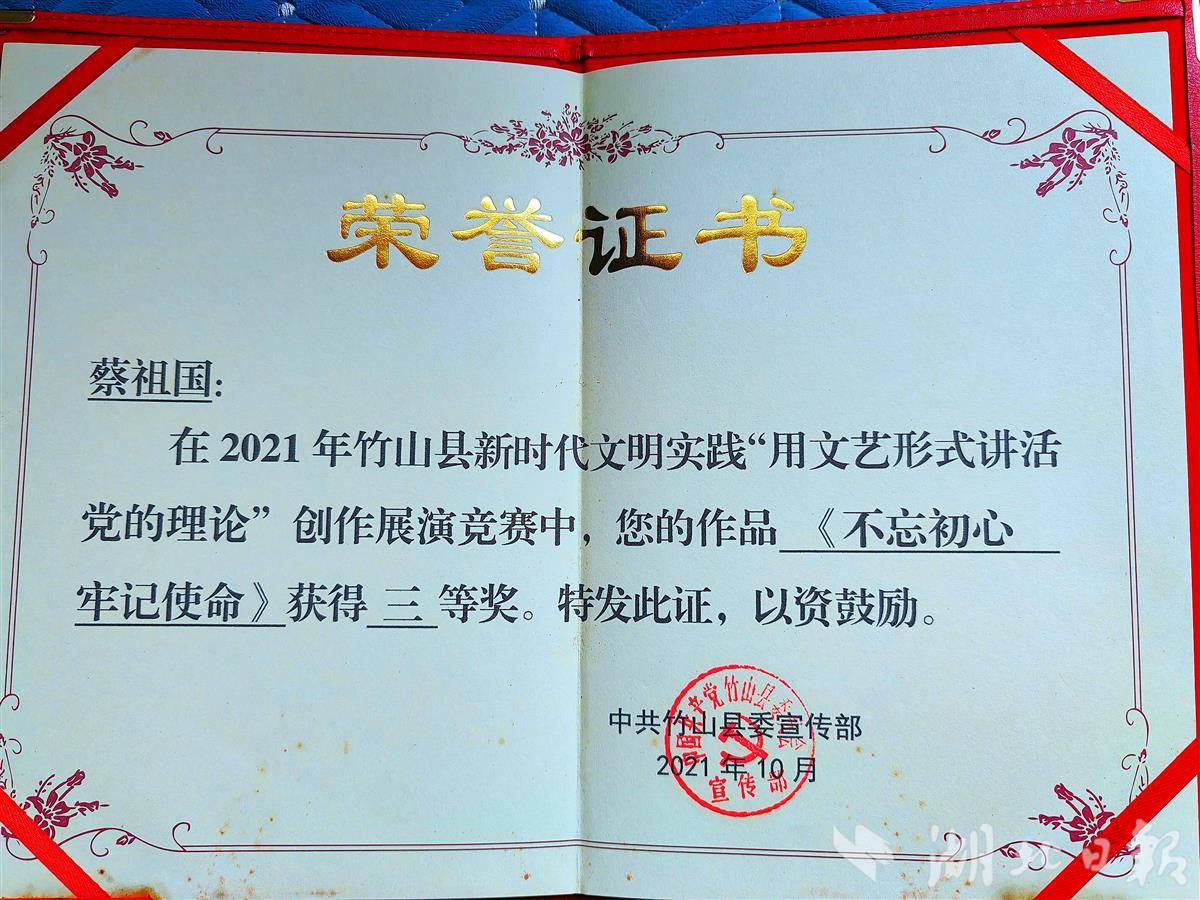 荣誉证书
蔡祖国:
在 2021 年竹山县新时代文明实践“用文艺形式讲活
党的理论”创作展演竞赛中，您的作品 《不忘初心
牢记使命》获得 三 等奖。特发此证，以资鼓励。
中共竹山县委宣传部
2021 年 10 月
中国共产党竹山县委员会
宣传部
湖北日报